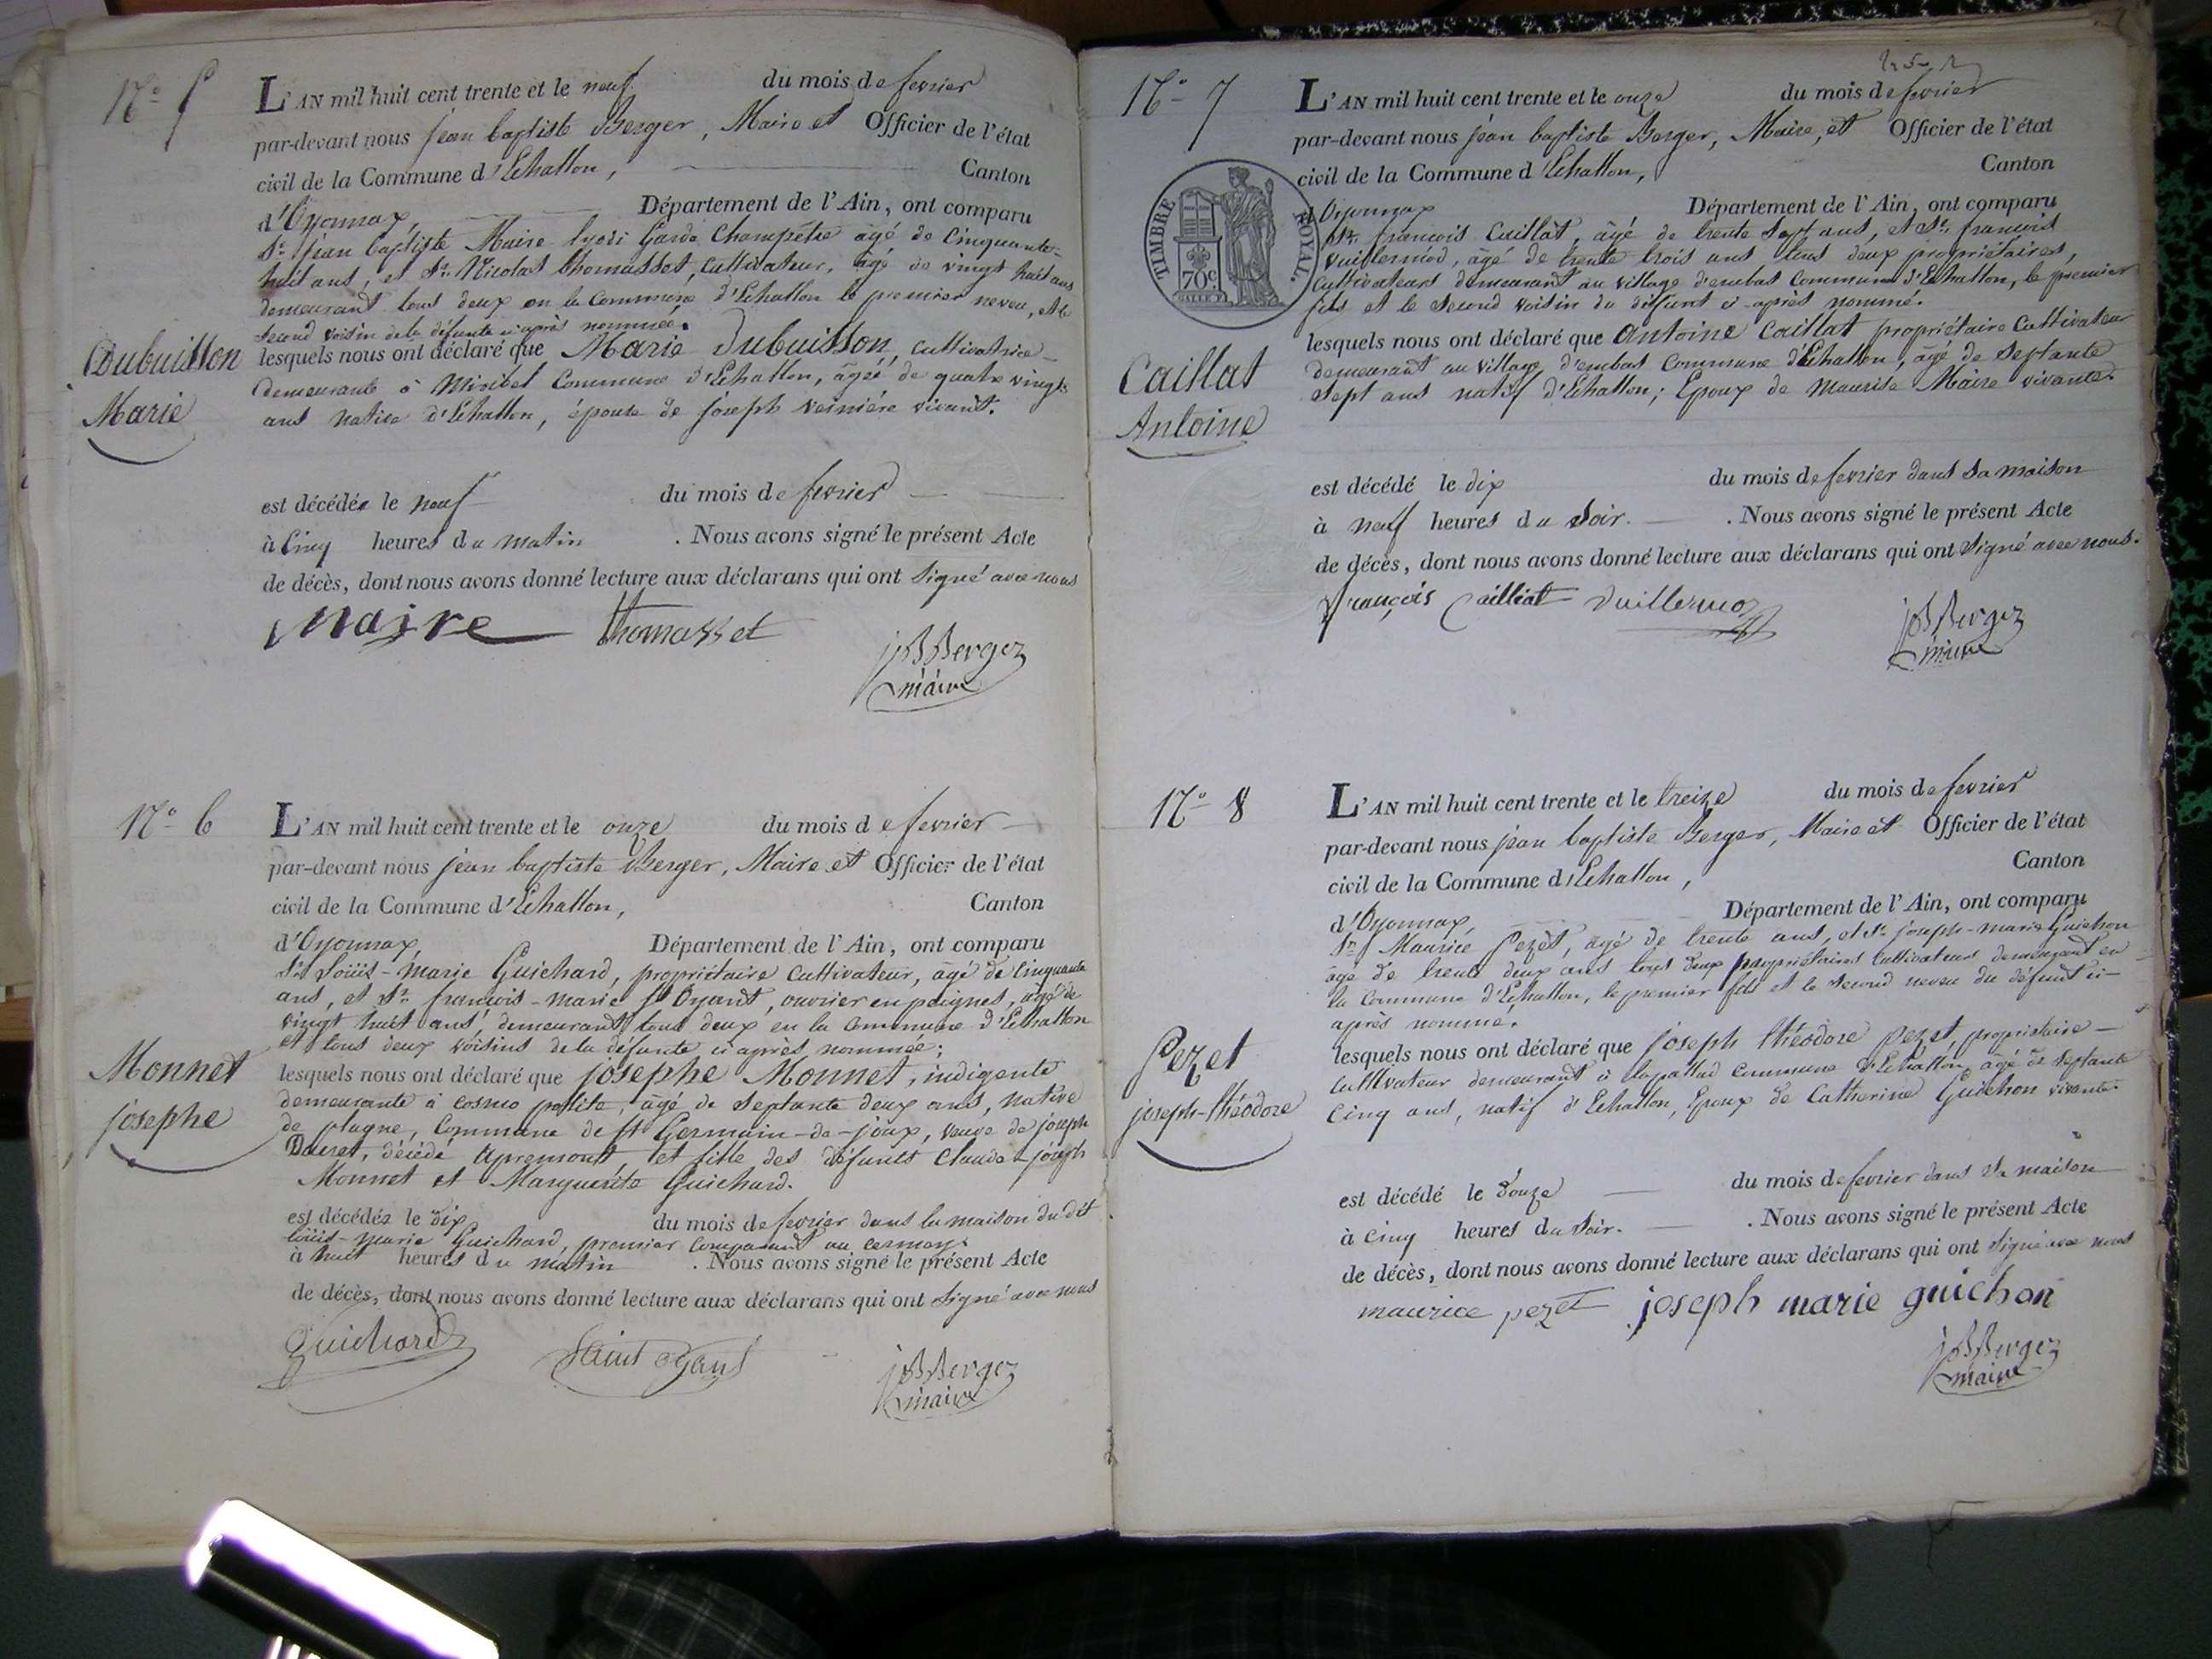 N.° 5
L'AN mil huit cent trente et le neuf du mois de fevrier
par-devant nous jean baptiste Berger, Maire et Officier de l'état
civil de la Commune d'Echallon, Canton
d'Oyonnax, Département de l'Ain, ont comparu
Sr. jean baptiste Maire Garde Champêtre âgé de Cinquante-
huit ans, et Sr. Nicolas thomasset, Cultivateur, âgé de vingt huit ans
demeurant tous deux en la Commune d'Echallon le premier neveu, et le
second voisin de la défunte ci-après nommée.
Dubuisson
Marie
lesquels nous ont déclaré que Marie Dubuisson, cultivatrice
demeurante à Miribel Commune d'Echallon, âgée de quatre vingts
ans native d'Echallon, épouse de joseph verniére vivant.
est décédée le neuf du mois de fevrier
à Cinq heures du matin. Nous avons signé le présent Acte
de décès, dont nous avons donné lecture aux déclarans qui ont signé avec nous
Maire thomasset
jB Berger
maire
N.° 6
L'AN mil huit cent trente et le onze du mois de fevrier
par-devant nous jean baptiste Berger, Maire et Officier de l'état
civil de la Commune d'Echallon, Canton
d'Oyonnax, Département de l'Ain, ont comparu
Sr. Loüis-marie Guichard, propriétaire cultivateur, âgé de Cinquante
ans, et Sr. françois-marie St Oyant, ouvrier en peignes, âgé de
vingt huit ans, demeurant tous deux en la Commune d'Echallon
et tous deux voisins de la défunte ci après nommée;
Monnet
josephe
lesquels nous ont déclaré que josephe Monnet, indigente
demeurante à âgé de septante deux ans, native
de plagne, Commune de St Germain-de-joux, veuve de joseph
décédé apremont, et fille des défunts Claude-joseph
Monnet et Marguerite Guichard.
est décédée le dix du mois de fevrier dans la maison du dit
loüis-marie Guichard, premier comparant au
à huit heures du matin. Nous avons signé le présent Acte
de décès, dont nous avons donné lecture aux déclarans qui ont signé avec nous
Guichard Saint Oyant
jB Berger
maire
N.° 7
L'AN mil huit cent trente et le onze du mois de fevrier
par-devant nous jean baptiste Berger, Maire, et Officier de l'état
civil de la Commune d'Echallon, Canton
d'Oyonnax Département de l'Ain, ont comparu
TIMBRE ROYAL.
70c.
Sr. françois Caillat, âgé de trente sept ans, et Sr. françois
vuillermod, âgé de trente trois ans tous deux propriétaires,
Cultivateurs demeurant au village d'embas Commune d'Echallon, le premier
fils et le second voisin du défunt ci-après nommé.
Caillat
Antoine
lesquels nous ont déclaré que Antoine Caillat propriétaire Cultivateur
demeurant au village d'embas Commune d'Echallon, âgé de septante
sept ans natif d'Echallon; Epoux de Maurise Maire vivante
est décédé le dix du mois de fevrier dans sa maison
à neuf heures du soir. Nous avons signé le présent Acte
de décès, dont nous avons donné lecture aux déclarans qui ont signé avec nous.
françois Cailliat Vuillermoz
jB Berger
maire
N.° 8
L'AN mil huit cent trente et le treize du mois de fevrier
par-devant nous jean baptiste Berger, Maire et Officier de l'état
civil de la Commune d'Echallon, Canton
d'Oyonnax, Département de l'Ain, ont comparu
Sr. Maurice Pezet, âgé de trente ans, et Sr. joseph-marie Guichon
âgé de trente deux ans tous deux propriétaires Cultivateurs demeurant en
la Commune d'Echallon, le premier fils et le second neveu du défunt ci-
après nommé.
Pezet
joseph-théodore
lesquels nous ont déclaré que joseph théodore pezet, propriétaire
cultivateur demeurant à Commune d'Echallon, âgé de septante
Cinq ans, natif d'Echallon, Epoux de Catherine Guichon vivante.
est décédé le douze du mois de fevrier dans sa maison
à Cinq heures du soir. Nous avons signé le présent Acte
de décès, dont nous avons donné lecture aux déclarans qui ont signé avec nous
maurice pezet joseph marie guichon
jB Berger
maire